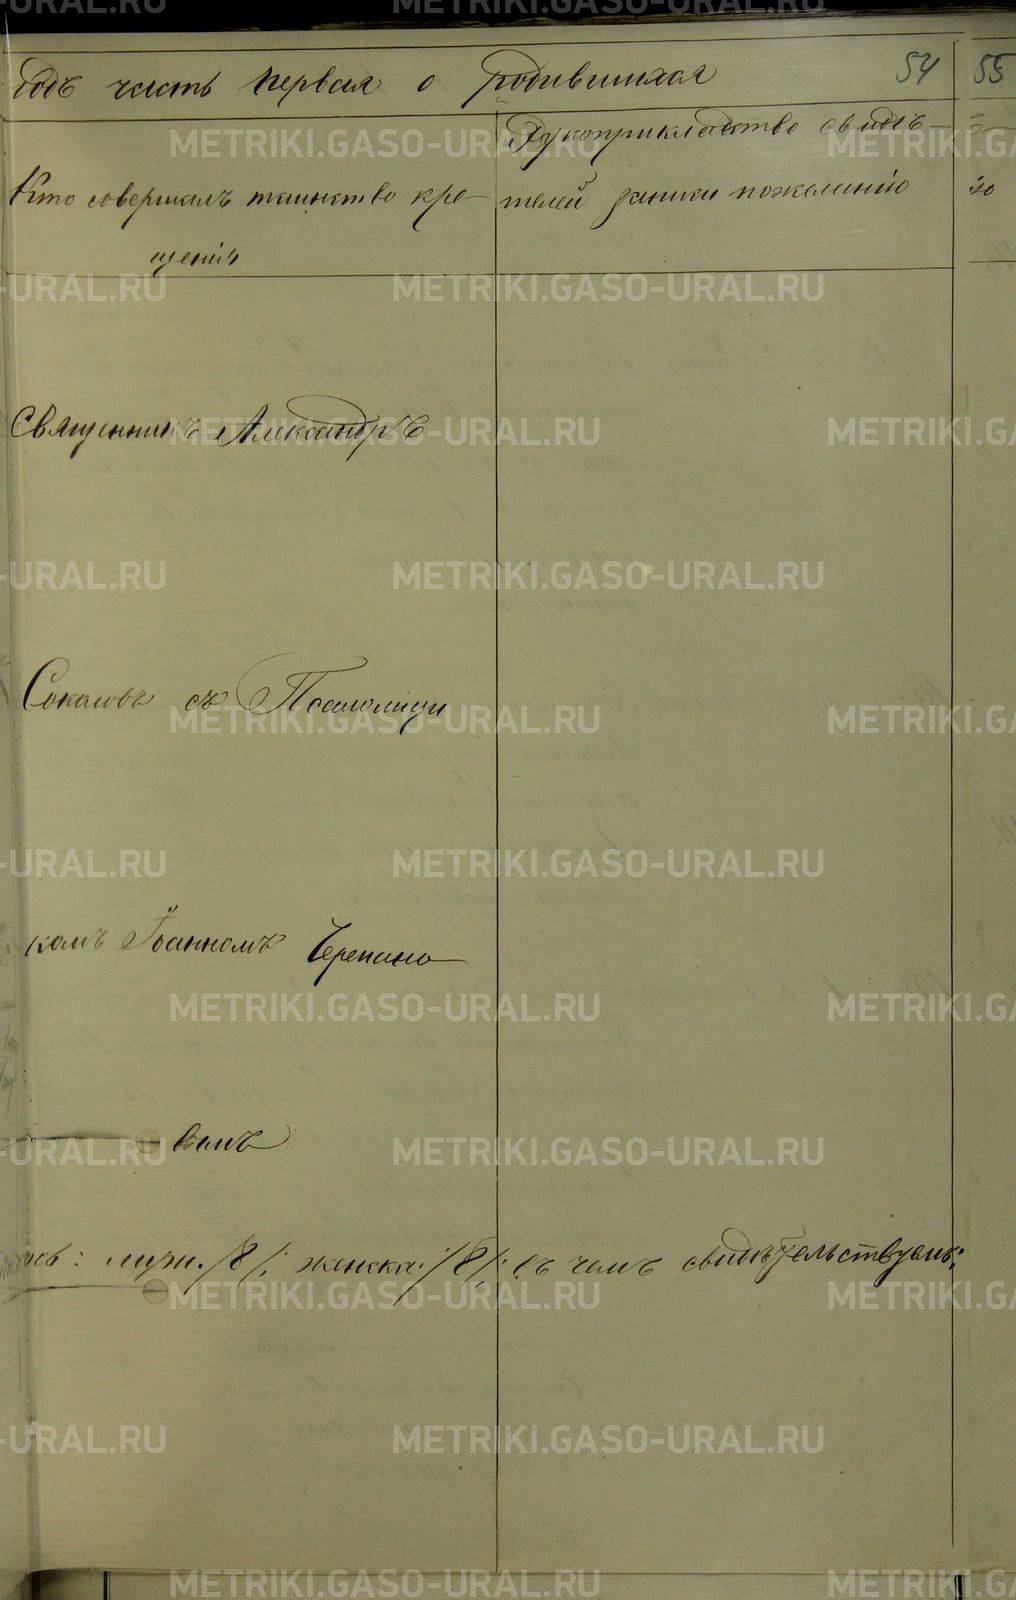 годъ часть первая о родившихся 54 55
Кто совершалъ таинство кре-
щенія
Рукоприкладство свидѣ-
телей записи по желанію
Священникъ Александръ
Соколовъ съ Псаломщи
комъ Іоанномъ Черепано-
вымъ
муж. /8/: женска: /8/: въ чемъ свидѣтельствуемъ:
METRIKI.GASO-URAL.RU